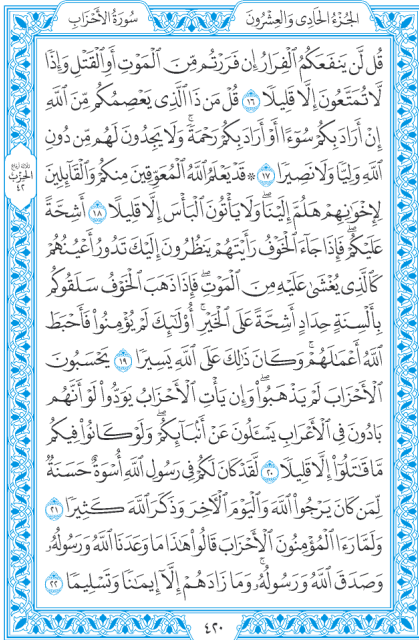 الجُزْءُ الحَادِي وَالعِشْرُونَ
سُورَةُ الأَحْزَابِ
قُل لَّن يَنفَعَكُمُ ٱلْفِرَارُ إِن فَرَرْتُم مِّنَ ٱلْمَوْتِ أَوِ ٱلْقَتْلِ وَإِذًا
لَّا تُمَتَّعُونَ إِلَّا قَلِيلًا ١٦ قُلْ مَن ذَا ٱلَّذِي يَعْصِمُكُم مِّنَ ٱللَّهِ
إِنْ أَرَادَ بِكُمْ سُوٓءًا أَوْ أَرَادَ بِكُمْ رَحْمَةً ۚ وَلَا يَجِدُونَ لَهُم مِّن دُونِ
ٱللَّهِ وَلِيًّا وَلَا نَصِيرًا ١٧ ۞ قَدْ يَعْلَمُ ٱللَّهُ ٱلْمُعَوِّقِينَ مِنكُمْ وَٱلْقَآئِلِينَ
لِإِخْوَٰنِهِمْ هَلُمَّ إِلَيْنَا ۖ وَلَا يَأْتُونَ ٱلْبَأْسَ إِلَّا قَلِيلًا ١٨ أَشِحَّةً
عَلَيْكُمْ ۖ فَإِذَا جَآءَ ٱلْخَوْفُ رَأَيْتَهُمْ يَنظُرُونَ إِلَيْكَ تَدُورُ أَعْيُنُهُمْ
كَٱلَّذِي يُغْشَىٰ عَلَيْهِ مِنَ ٱلْمَوْتِ ۖ فَإِذَا ذَهَبَ ٱلْخَوْفُ سَلَقُوكُم
بِأَلْسِنَةٍ حِدَادٍ أَشِحَّةً عَلَى ٱلْخَيْرِ ۚ أُو۟لَٰٓئِكَ لَمْ يُؤْمِنُوا۟ فَأَحْبَطَ
ٱللَّهُ أَعْمَٰلَهُمْ ۚ وَكَانَ ذَٰلِكَ عَلَى ٱللَّهِ يَسِيرًا ١٩ يَحْسَبُونَ
ٱلْأَحْزَابَ لَمْ يَذْهَبُوا۟ ۖ وَإِن يَأْتِ ٱلْأَحْزَابُ يَوَدُّوا۟ لَوْ أَنَّهُم
بَادُونَ فِي ٱلْأَعْرَابِ يَسْـَٔلُونَ عَنْ أَنۢبَآئِكُمْ ۖ وَلَوْ كَانُوا۟ فِيكُم
مَّا قَٰتَلُوٓا۟ إِلَّا قَلِيلًا ٢٠ لَّقَدْ كَانَ لَكُمْ فِي رَسُولِ ٱللَّهِ أُسْوَةٌ حَسَنَةٌ
لِّمَن كَانَ يَرْجُوا۟ ٱللَّهَ وَٱلْيَوْمَ ٱلْءَاخِرَ وَذَكَرَ ٱللَّهَ كَثِيرًا ٢١
وَلَمَّا رَءَا ٱلْمُؤْمِنُونَ ٱلْأَحْزَابَ قَالُوا۟ هَٰذَا مَا وَعَدَنَا ٱللَّهُ وَرَسُولُهُۥ
وَصَدَقَ ٱللَّهُ وَرَسُولُهُۥ ۚ وَمَا زَادَهُمْ إِلَّآ إِيمَٰنًا وَتَسْلِيمًا ٢٢
ثلاثة أرباع
الحزب
٤٢
٤٢٠